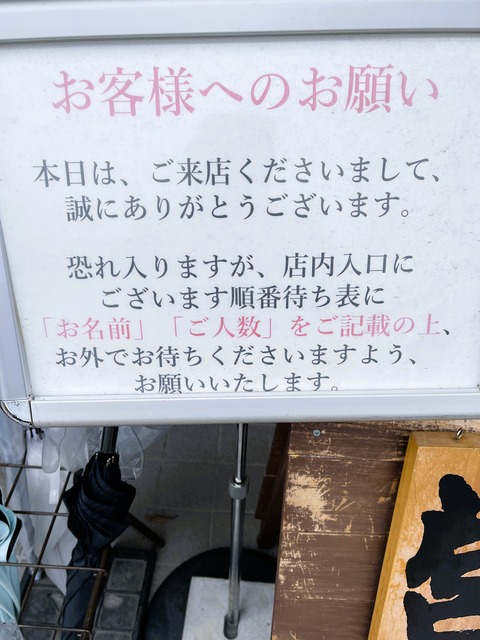 お客様へのお願い
本日は、ご来店くださいまして、
誠にありがとうございます。
恐れ入りますが、店内入口に
ございます順番待ち表に
「お名前」「ご人数」をご記載の上、
お外でお待ちくださいますよう、
お願いいたします。